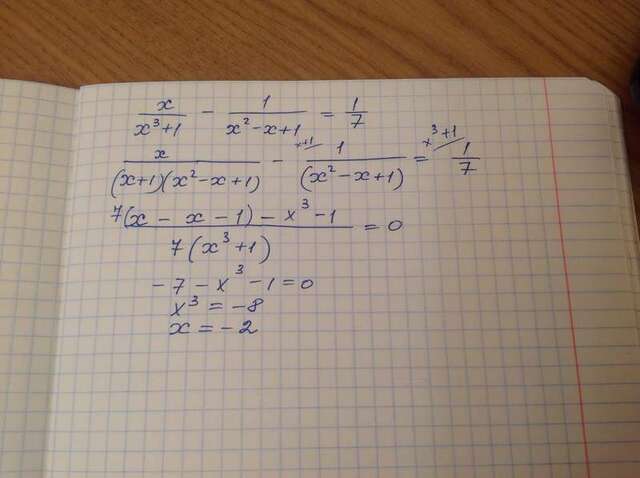 x/(x³+1) − 1/(x²−x+1) = 1/7
x/((x+1)(x²−x+1)) − ˣ⁺¹⁄ 1/(x²−x+1) = ˣ³⁺¹⁄ 1/7
(7(x − x − 1) − x³ − 1)/(7(x³+1)) = 0
−7 − x³ − 1 = 0
x³ = −8
x = −2